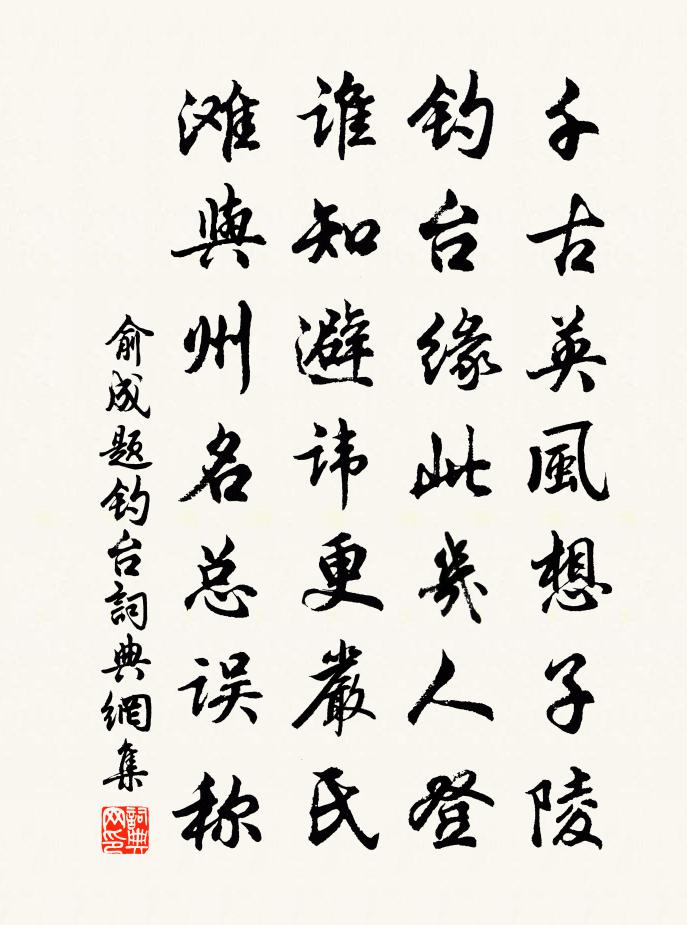 千古英風想子陵
钓台緣此幾人登
谁知避讳更嚴氏
滩與州名总误称
俞成题钓台詞典網集
詞典网印